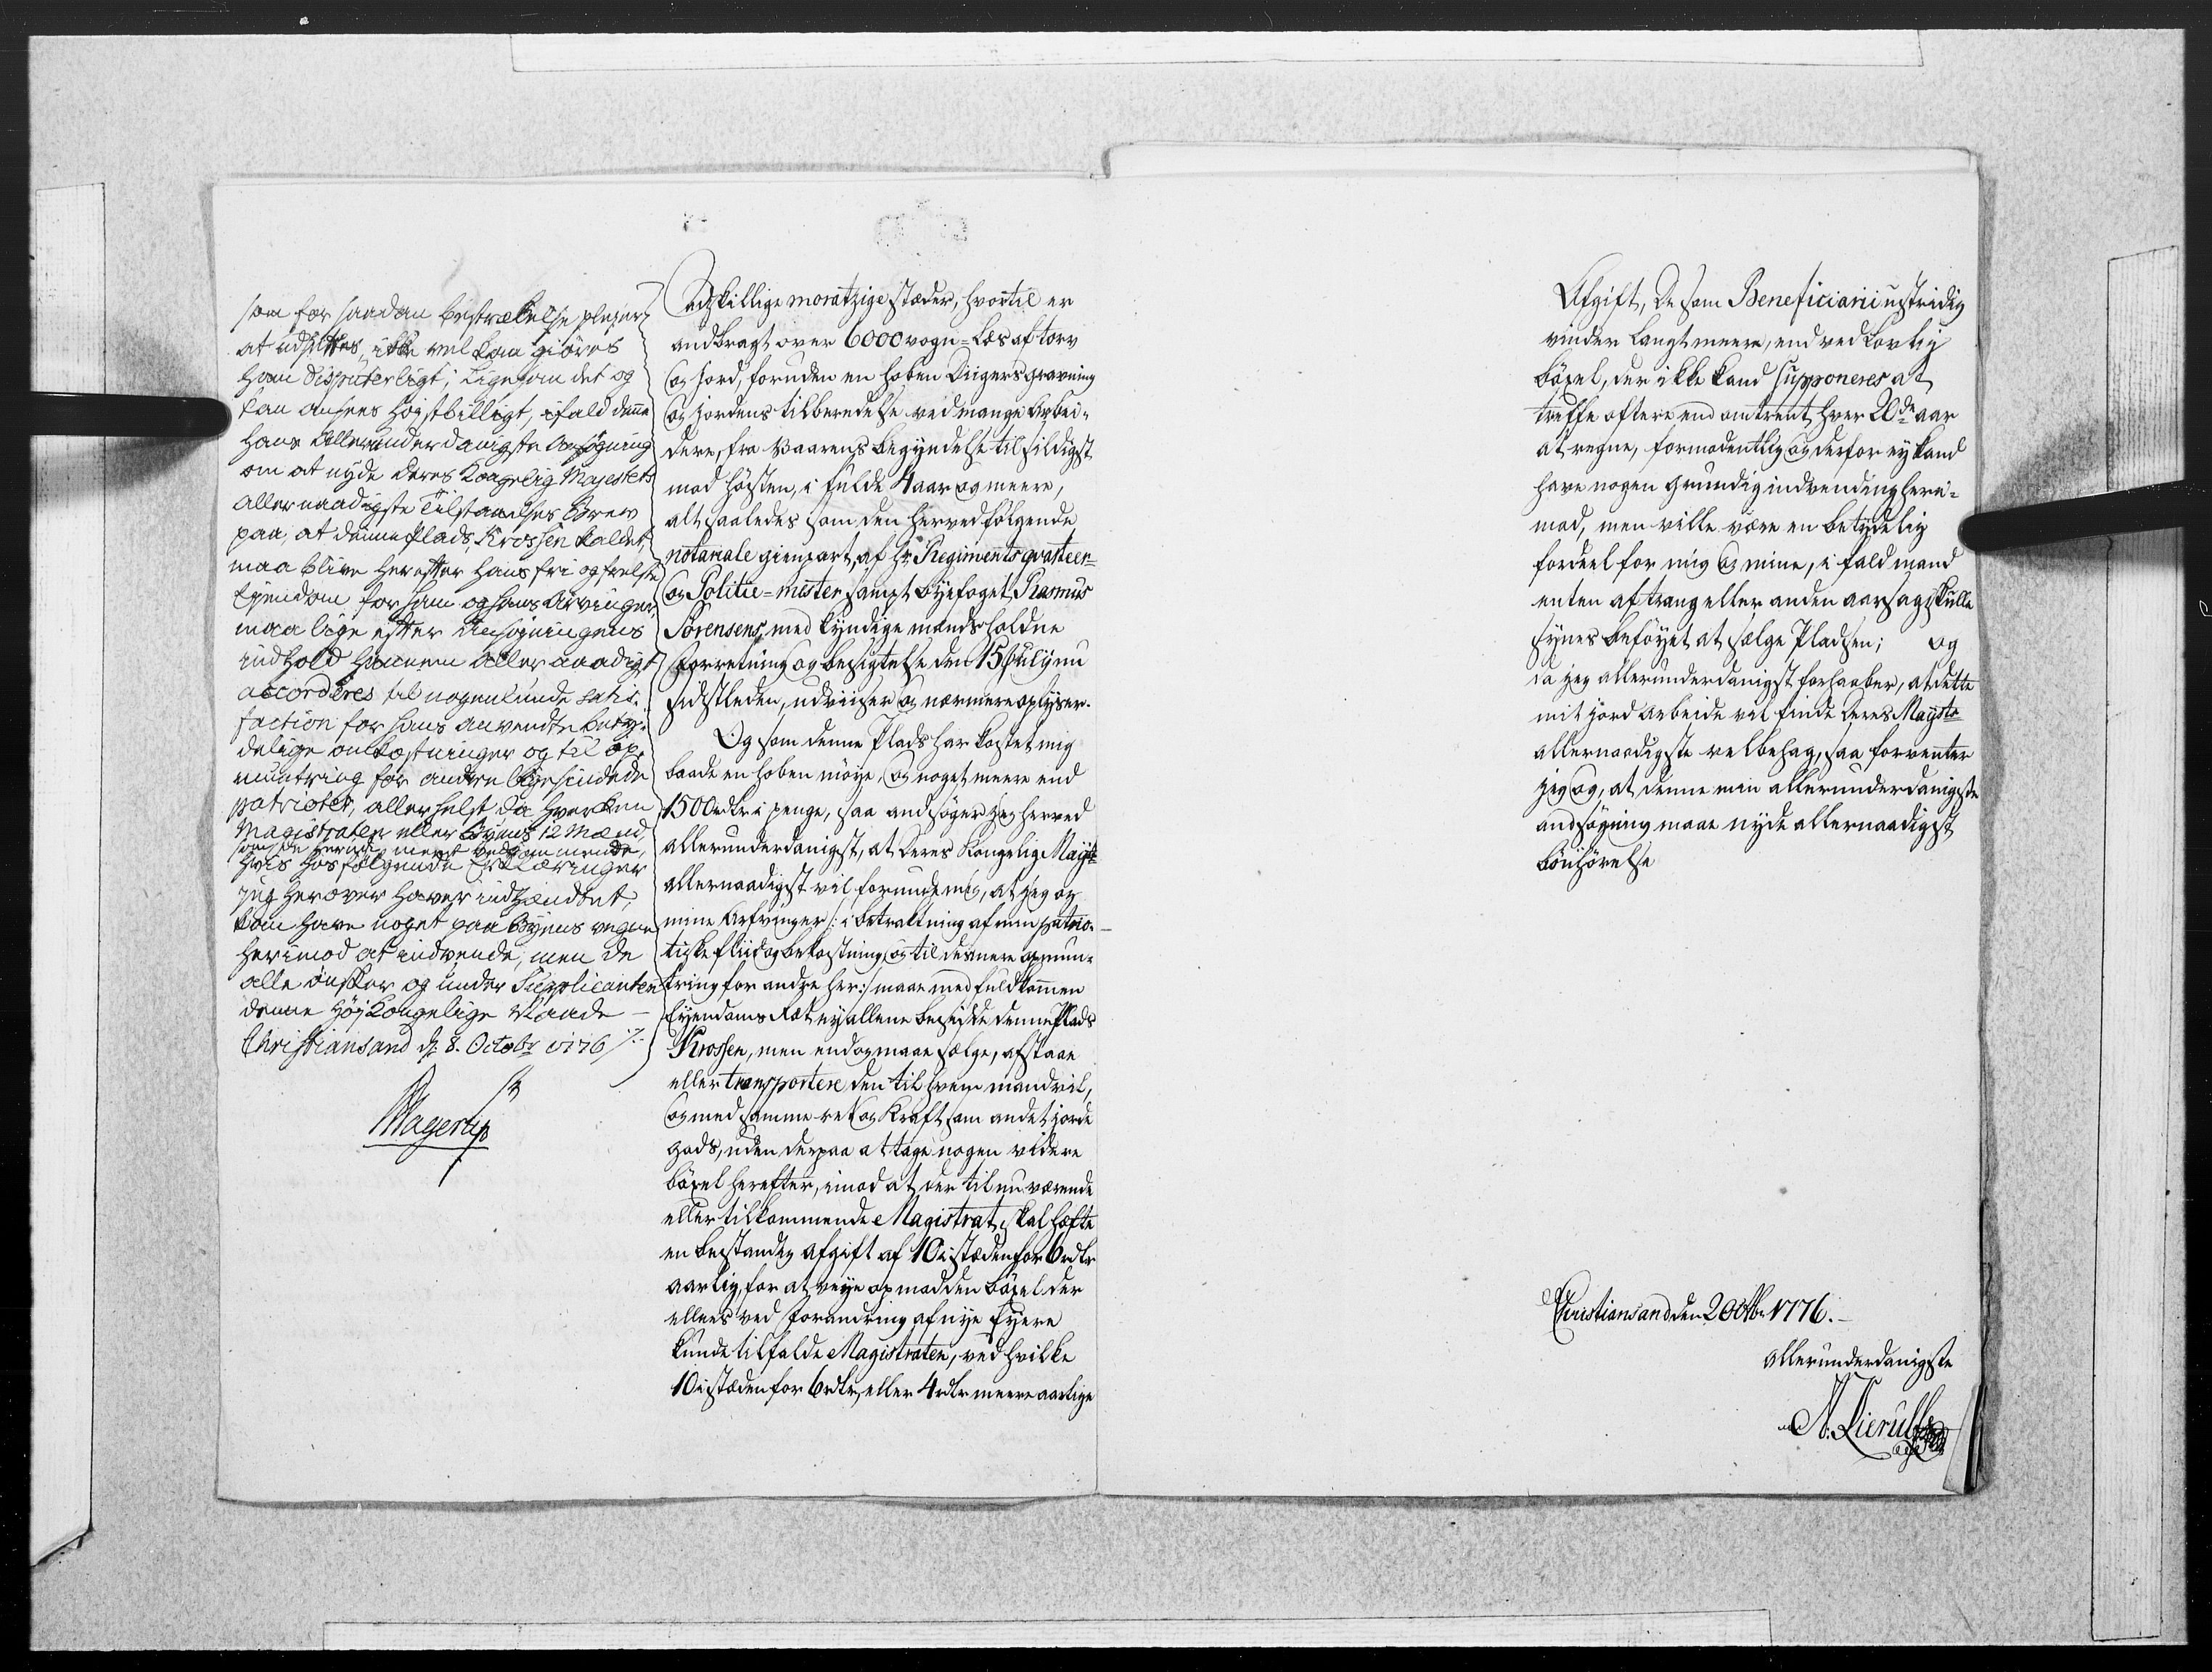 som for saadan bestrækelse plejer
at udsættes, ikke vel kan giöres
ham disputerligt; ligesom det og
kan ansees högstbilligt, ifald denne
hans allerunderdanigste Ansögning
om at nyde Deres Kongelig Majestets
allernaadigste Tilstaaelses Brev
paa, at denne Plads, Krossen kaldet,
maa blive herefter hans fri og frelste
Ejendom for ham og hans Arvinger,
maa lige efter Ansøgningens
indhold hannem allernaadigst
accorderes til nogenlunde satis-
faction for hans anvendte bety-
delige omkostninger og til op-
muntring for andre ligesindede
patrioter, allerhelst da hverken
Magistraten eller Byens 12 Mænd
som en herudi meest vedkommende,
hvis hosfølgende Erklæringer
jeg herover haver indhændtet,
kan have noget paa Byens vegne
herimod at indvende, men de
alle ønsker og under Supplicanten
denne Høj Kongelige Naade —
Christiansand d: 8. Octobr 1776 ./.
Hagerup
Adskillige moratzige stæder, hvortil er
andbragt over 6000 vogn-Læs af torv
og jord, foruden en hoben Diigers gravning
og jordens tilberedelse ved mange Arbei-
dere, fra Vaarens begyndelse til sildigst
mod høsten, i fulde 4 aar og meere,
alt saaledes som den herved følgende
notariale gienpart af Hr Regimentsqvarteer-
og Politie-mester samt byefoget Rasmus
Sørensens, med kyndige mænds holdne
forretning og besigtelse den 15 July nu
sidstleden, udviiser og nærmere oplyser.
Og som denne Plads har kostet mig
baade en hoben møye, og noget meere end
1500 rdlr i penge, saa andsøger jeg herved
allerunderdanigst, at Deres Kongelig Mayst:
allernaadigst vil forunde mig, at jeg og
mine Arfvinger /: i betraktning af min patrio-
tiske fliid og bekostning og til desmere opmun-
tring for andre her :/ maae med fuldkommen
Eyendoms Ræt ey allene besidde denne Plads
Krossen, men endog maae sælge, afstaae
eller transportere den til hvem mand vil,
og med samme ret og Kraft som andet jorde
gods, uden derpaa at tage nogen videre
böxel herefter, imod at der til nu værende
eller tilkommende Magistrat skal hæfte
en bestandig Afgift af 10 i stæden for 6 rdlr
aarlig, for at veye op mod den böxel der
ellers ved forandring af nye Eyere
kunde tilfalde Magistraten, ved hvilke
10 i stæden for 6 rdlr, eller 4 rdlr meere aarlige
Afgift, De som Beneficiarii ustridig
vinder langt meere, end ved Lovlig
böxel, der ikke kand supponeres at
treffe oftere end omtrent hver 20de aar
at regne, formodentlig og derfor ey kand
have nogen grundig indvending heri-
mod, men ville være en betydelig
fordeel for mig og mine, i fald mand
enten af trang eller anden aarsag skulle
synes beföyet at sælge Pladsen; og
da jeg allerunderdanigst forhaaber, at dette
mit jord arbeide vil finde Deres Maysts
allernaadigste velbehag, saa forventer
jeg og, at denne min allerunderdanigste
andsøgning maae nyde allernaadigst
bönhörelse
Christiansand den 2 Octbr 1776. –
allerunderdanigste
N. Lierulf